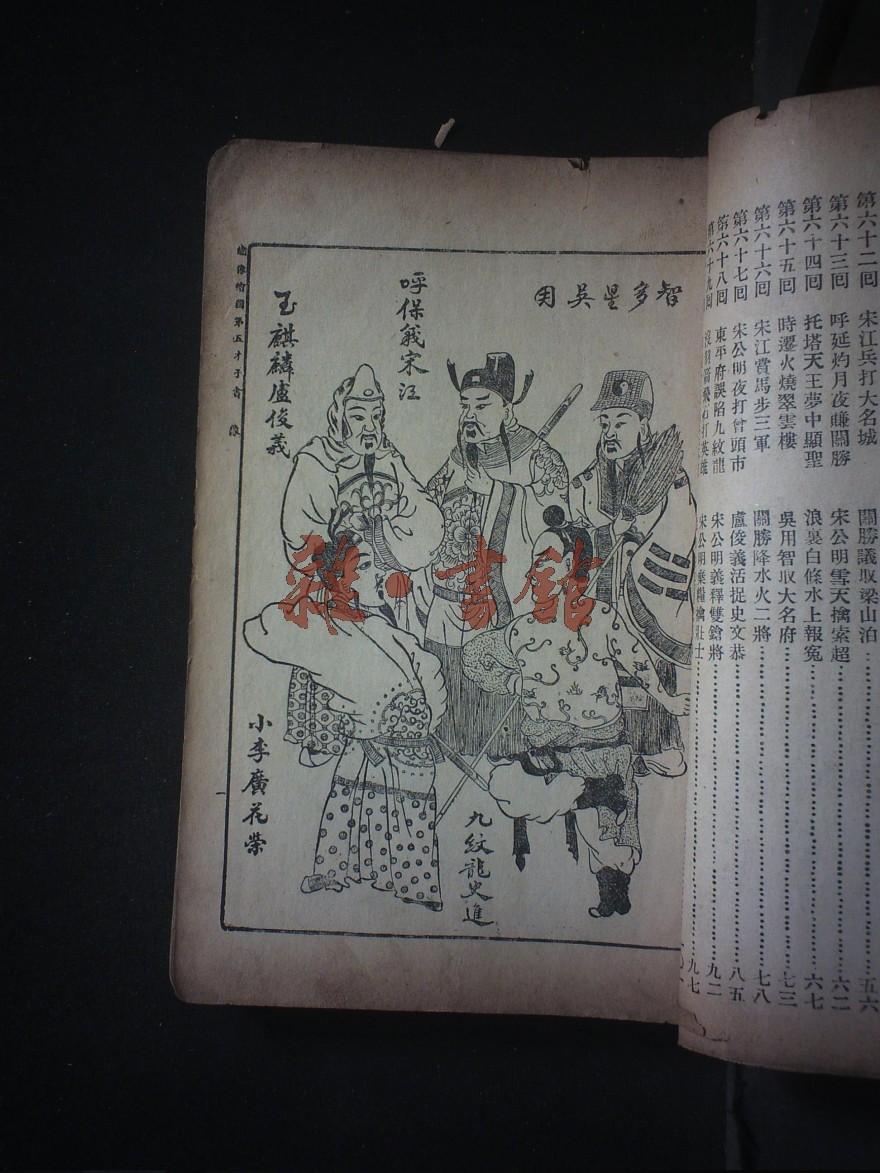 第六十二回 宋江兵打大名城 關勝議取梁山泊 五六
第六十三回 呼延灼月夜賺關勝 宋公明雪天擒索超 六二
第六十四回 托塔天王夢中顯聖 浪裏白條水上報冤 六七
第六十五回 時遷火燒翠雲樓 吳用智取大名府 七三
第六十六回 宋江賞馬步三軍 關勝降水火二將 七八
第六十七回 宋公明夜打曾頭市 盧俊義活捉史文恭 八五
第六十八回 東平府誤陷九紋龍 宋公明義釋雙鎗將 九二
第六十九回 打英雄 宋公明棄糧擒壯士 九七
智多星吳用
呼保義宋江
玉麒麟盧俊義
小李廣花榮
九紋龍史進
繪圖第五才子書 像
雜·書館